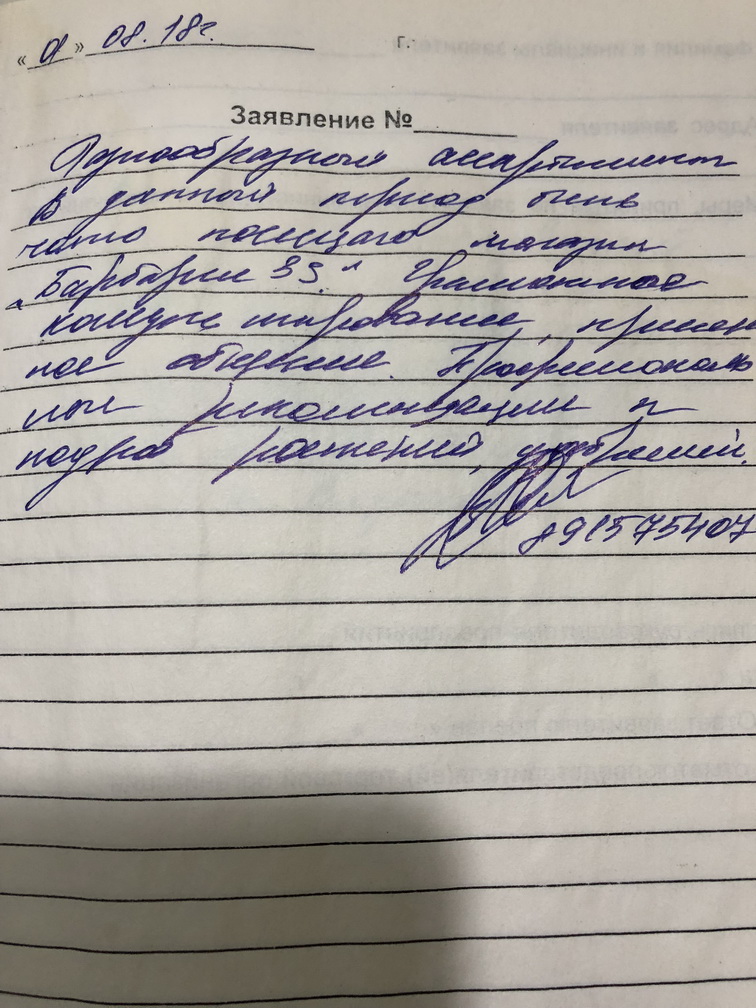 « 01 » 08. 18г. г.
Заявление №
Разнообразный ассортимент
В данный период очень
часто посещаю магазин
"Барбарис 33" Грамотное
консультирование, прият
ное общение. Профессиональ
ные рекомендации и
подбор растений, удобрений.
891575407